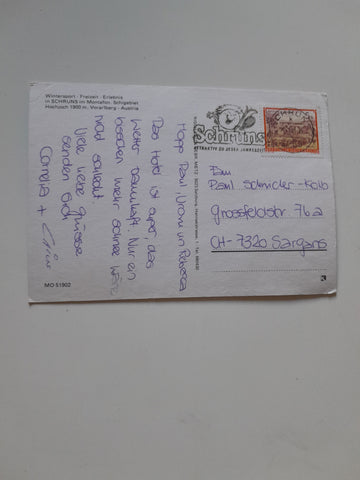 Wintersport - Freizeit - Erlebnis
in SCHRUNS im Montafon. Schigebiet
Hochjoch 1900 m. Vorarlberg - Austria
Hopp Paul, und Rebecca
Das Hotel ist super, das
Wetter traumhaft. Nur ein
bisschen mehr Schnee wäre
nicht schlecht
Viele liebe Grüsse
senden Dich
Cornelia +
MO 51902
Schruns
ATTRAKTIV ZU JEDER JAHRESZEIT
Fam
Paul Schmider-Kolb
Grossfeldstr 76a
CH-7320 Sargans